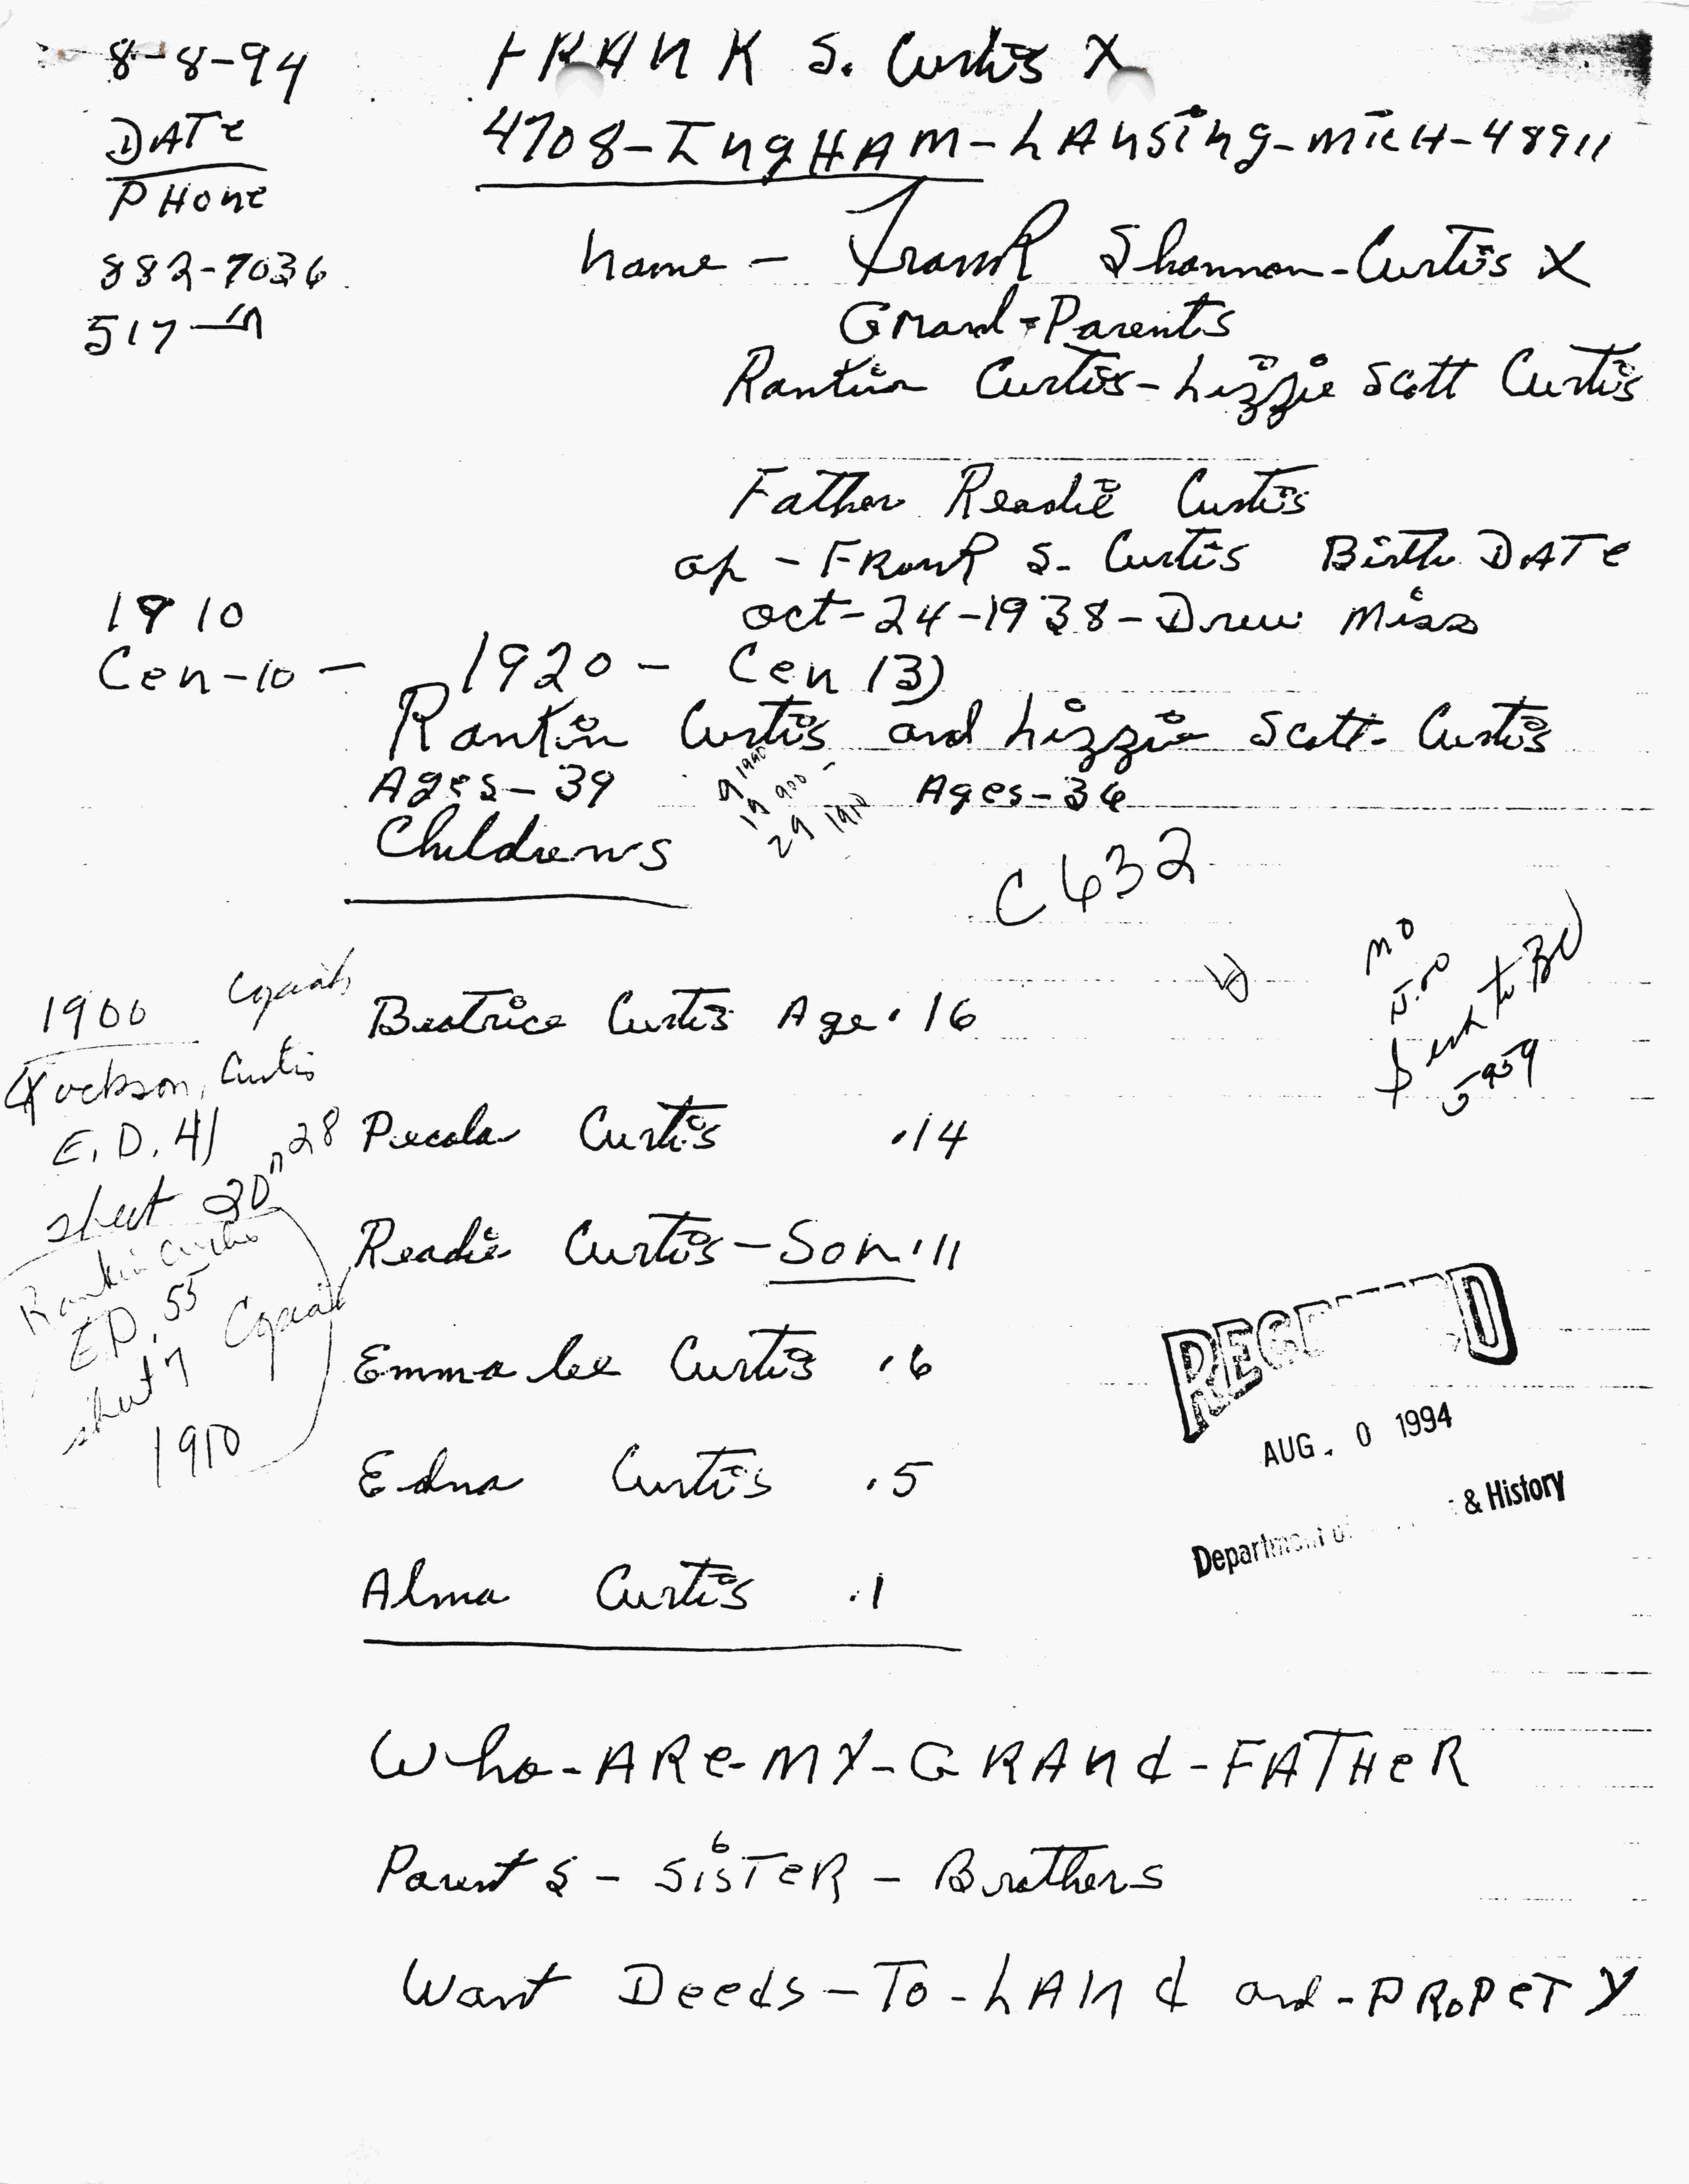 8-8-94
FRANK S. Curtis X
DATE
4708-IngHAM-LAnsing-MicH-48911
PHone
882-7036
517
name - Frank Shannon-Curtis X
Grand-Parents
Rankin Curtis-Lizzie Scott Curtis
Father Readie Curtis
of - FRank S. Curtis Birth DATe
oct-24-1938-Drew Miss
1910
Cen-10 - 1920 - Cen 13)
Rankin Curtis and Lizzie Scott-Curtis
Ages-39 Ages-36
9 1890
19 900 -
29 1910
Childrens
C632
MO
5.00
Sent to BU
5959
1900 Cquiah
Jackson, Curtis
E.D. 41
sheet 20 n 28
Rankin Curtis
ED. 55
sheet 7 Cquiah
1910
Beatrice Curtis Age. 16
Pecola Curtis .14
Readie Curtis-Son.11
Emma lee Curtis .6
Edna Curtis .5
Alma Curtis .1
RECEIVED
AUG. 0 1994
Department of & History
Who-ARe-MY-GRANd-FATHeR
Parents - SiSTeR - Brothers
Want Deeds-To-LANd and-PRoPeTY